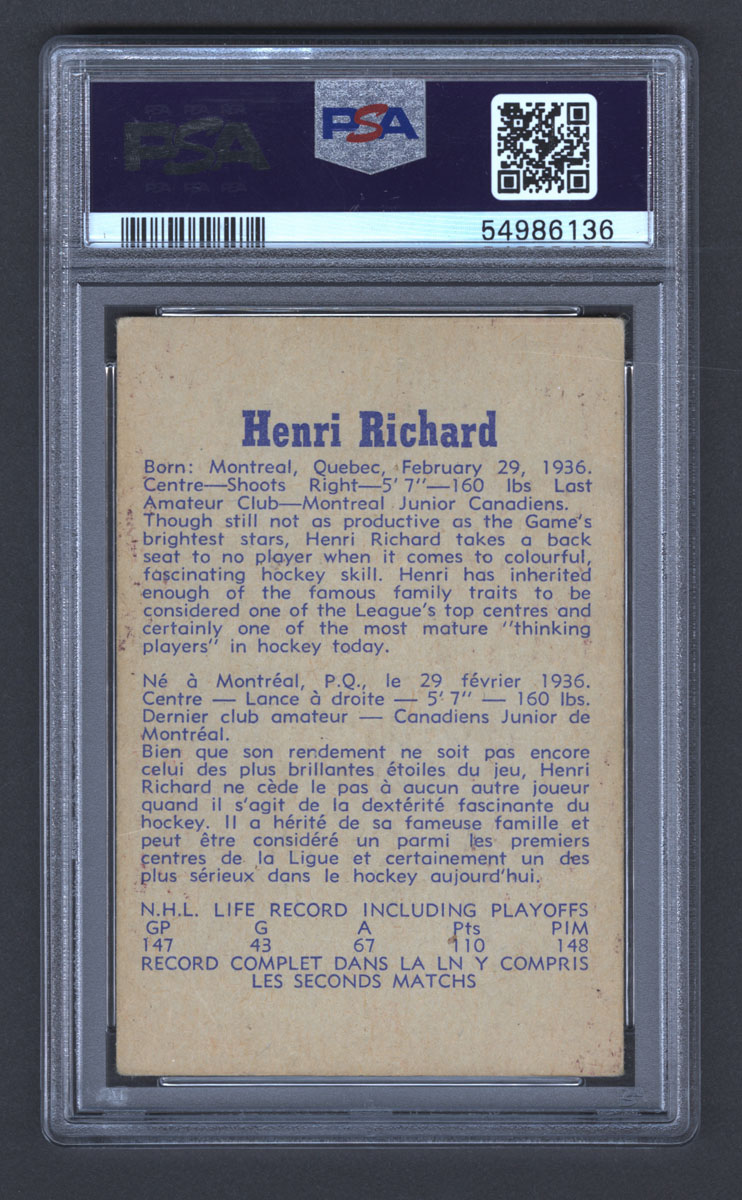 PSA
PSA
54986136
Henri Richard
Born: Montreal, Quebec, February 29, 1936.
Centre—Shoots Right—5' 7"—160 lbs Last
Amateur Club—Montreal Junior Canadiens.
Though still not as productive as the Game's
brightest stars, Henri Richard takes a back
seat to no player when it comes to colourful,
fascinating hockey skill. Henri has inherited
enough of the famous family traits to be
considered one of the League's top centres and
certainly one of the most mature "thinking
players" in hockey today.
Né à Montréal, P.Q., le 29 février 1936.
Centre — Lance à droite — 5' 7" — 160 lbs.
Dernier club amateur — Canadiens Junior de
Montréal.
Bien que son rendement ne soit pas encore
celui des plus brillantes étoiles du jeu, Henri
Richard ne cède le pas à aucun autre joueur
quand il s'agit de la dextérité fascinante du
hockey. Il a hérité de sa fameuse famille et
peut être considéré un parmi les premiers
centres de la Ligue et certainement un des
plus sérieux dans le hockey aujourd'hui.
N.H.L. LIFE RECORD INCLUDING PLAYOFFS
GP G A Pts PIM
147 43 67 110 148
RECORD COMPLET DANS LA LN Y COMPRIS
LES SECONDS MATCHS